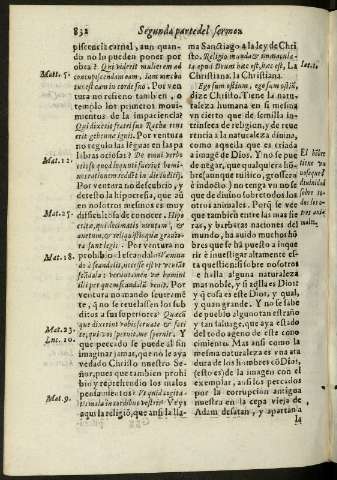 832 Segunda parte del sermon
piscencia carnal, aun quan-
do no lo pueden poner por
obra? Qui viderit mulierem ad
Matt. 5. concupiscendum eam, iam mœcha
tus est eam in corde suo. Por ven
tura no refreno tambien en
templo los primeros movi-
mientos de la impaciencia?
Qui dixerit fratri suo Racha reus
erit gehennæ ignis. Por ventura
no regulo las lēguas en las pa
labras ociosas? De omni verbo
Mat. 12. otioso quod locuti
reddēt in die iudicij.
Por ventura no descubrio, y
detesto la hipocresia, que aū
en nosotros mesmos es muy
Mat. 25. dificultosa de conocer.
crita, qui decimatis mentum, &
anetum, & reliquistis quæ graviora
sunt legis. Por ventura no
Mat. 18. prohibio el escandalo?
Por
ventura no mando severamē
te, q̄ no se revelassen los sub
ditos a sus superiores?
Mat. 23. que dixerint vobis servate & faci
Luc. 10. te, qui vos spernit, me spernit. Y
que peccado se puede al fin
imaginar jamas, que no le aya
vedado Christo nuestro Se-
ñor, pues que tambien prohi
bio y reprehendio los malos
pensamientos?
Mat. 9. mala in cordibus vestris? Veys
aqui la religiō, que ansi la lla-
ma Sanctiago a la ley de Chri
sto. Religio munda & immacula-
ta apud Deum hæc est, hæc est, La Iac. 1.
Christiana, la Christiana.
Ego sum ostium, ego sum ostiū,
dize Christo. Tiene la natu-
raleza humana en si mesma
vn cierto que de semilla in-
trinseca de religion, y de reue
rencia a la naturaleza divina,
como aquella que es criada
a image de Dios. Y no se pue
de negar, que qualquiera hō-
bre (aunque rustico, grossero
è indocto) no tenga vn no se
que de divino sobre todos los
otros animales. Porq̄ se vee
que tambien entre las mas fie
ras, y barbaras naciones del
mundo, ha auido muchos hō
bres que se hā puesto a inque
rir è investigar altamente es-
ta question si sobre nosotros
se halla alguna naturaleza
mas noble, y si aq̄lla es Dios
y q̄ cosa es este Dios, y qual,
y quan grande. Y no se sabe
de pueblo alguno tan estraño
y tan saluage, que aya estado
del todo ageno de este cono-
cimiento. Mas ansi como la
mesma naturaleza es vna ata
dura de los hombres cō Dios,
(esto es) de la imagen con el
exemplar, ansi los peccados
por la corrupcion antigua
nuestra en la cepa vieja de
Adam desatan, y apartan a
El hōbre
tiene vn
no se que d̄
divinidad
sobre to-
dos los o-
tros ani-
males.
la